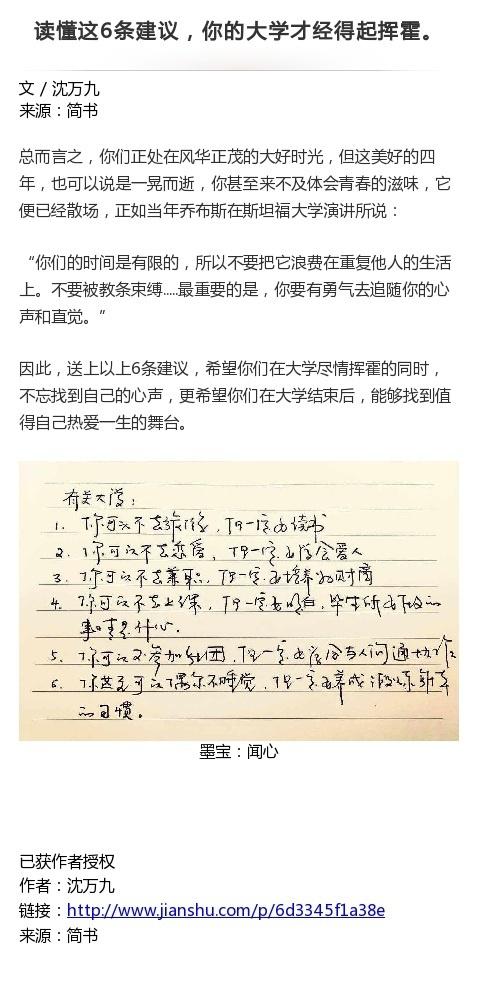 读懂这6条建议，你的大学才经得起挥霍。
文 / 沈万九
来源：简书
总而言之，你们正处在风华正茂的大好时光，但这美好的四
年，也可以说是一晃而逝，你甚至来不及体会青春的滋味，它
便已经散场，正如当年乔布斯在斯坦福大学演讲所说：
“你们的时间是有限的，所以不要把它浪费在重复他人的生活
上。不要被教条束缚.....最重要的是，你要有勇气去追随你的心
声和直觉。”
因此，送上以上6条建议，希望你们在大学尽情挥霍的同时，
不忘找到自己的心声，更希望你们在大学结束后，能够找到值
得自己热爱一生的舞台。
有关大学：
1. 你可以不去旅行，但一定要读书
2. 你可以不去恋爱，但一定要学会爱人
3. 你可以不去兼职，但一定要培养财商
4. 你可以不去上课，但一定要明白，毕生所要做的
事情是什么。
5. 你可以不参加社团，但一定要学会与人沟通协作
6. 你甚至可以偶尔不睡觉，但一定要养成锻炼身体
的习惯。
墨宝：闻心
已获作者授权
作者：沈万九
链接：http://www.jianshu.com/p/6d3345f1a38e
来源：简书